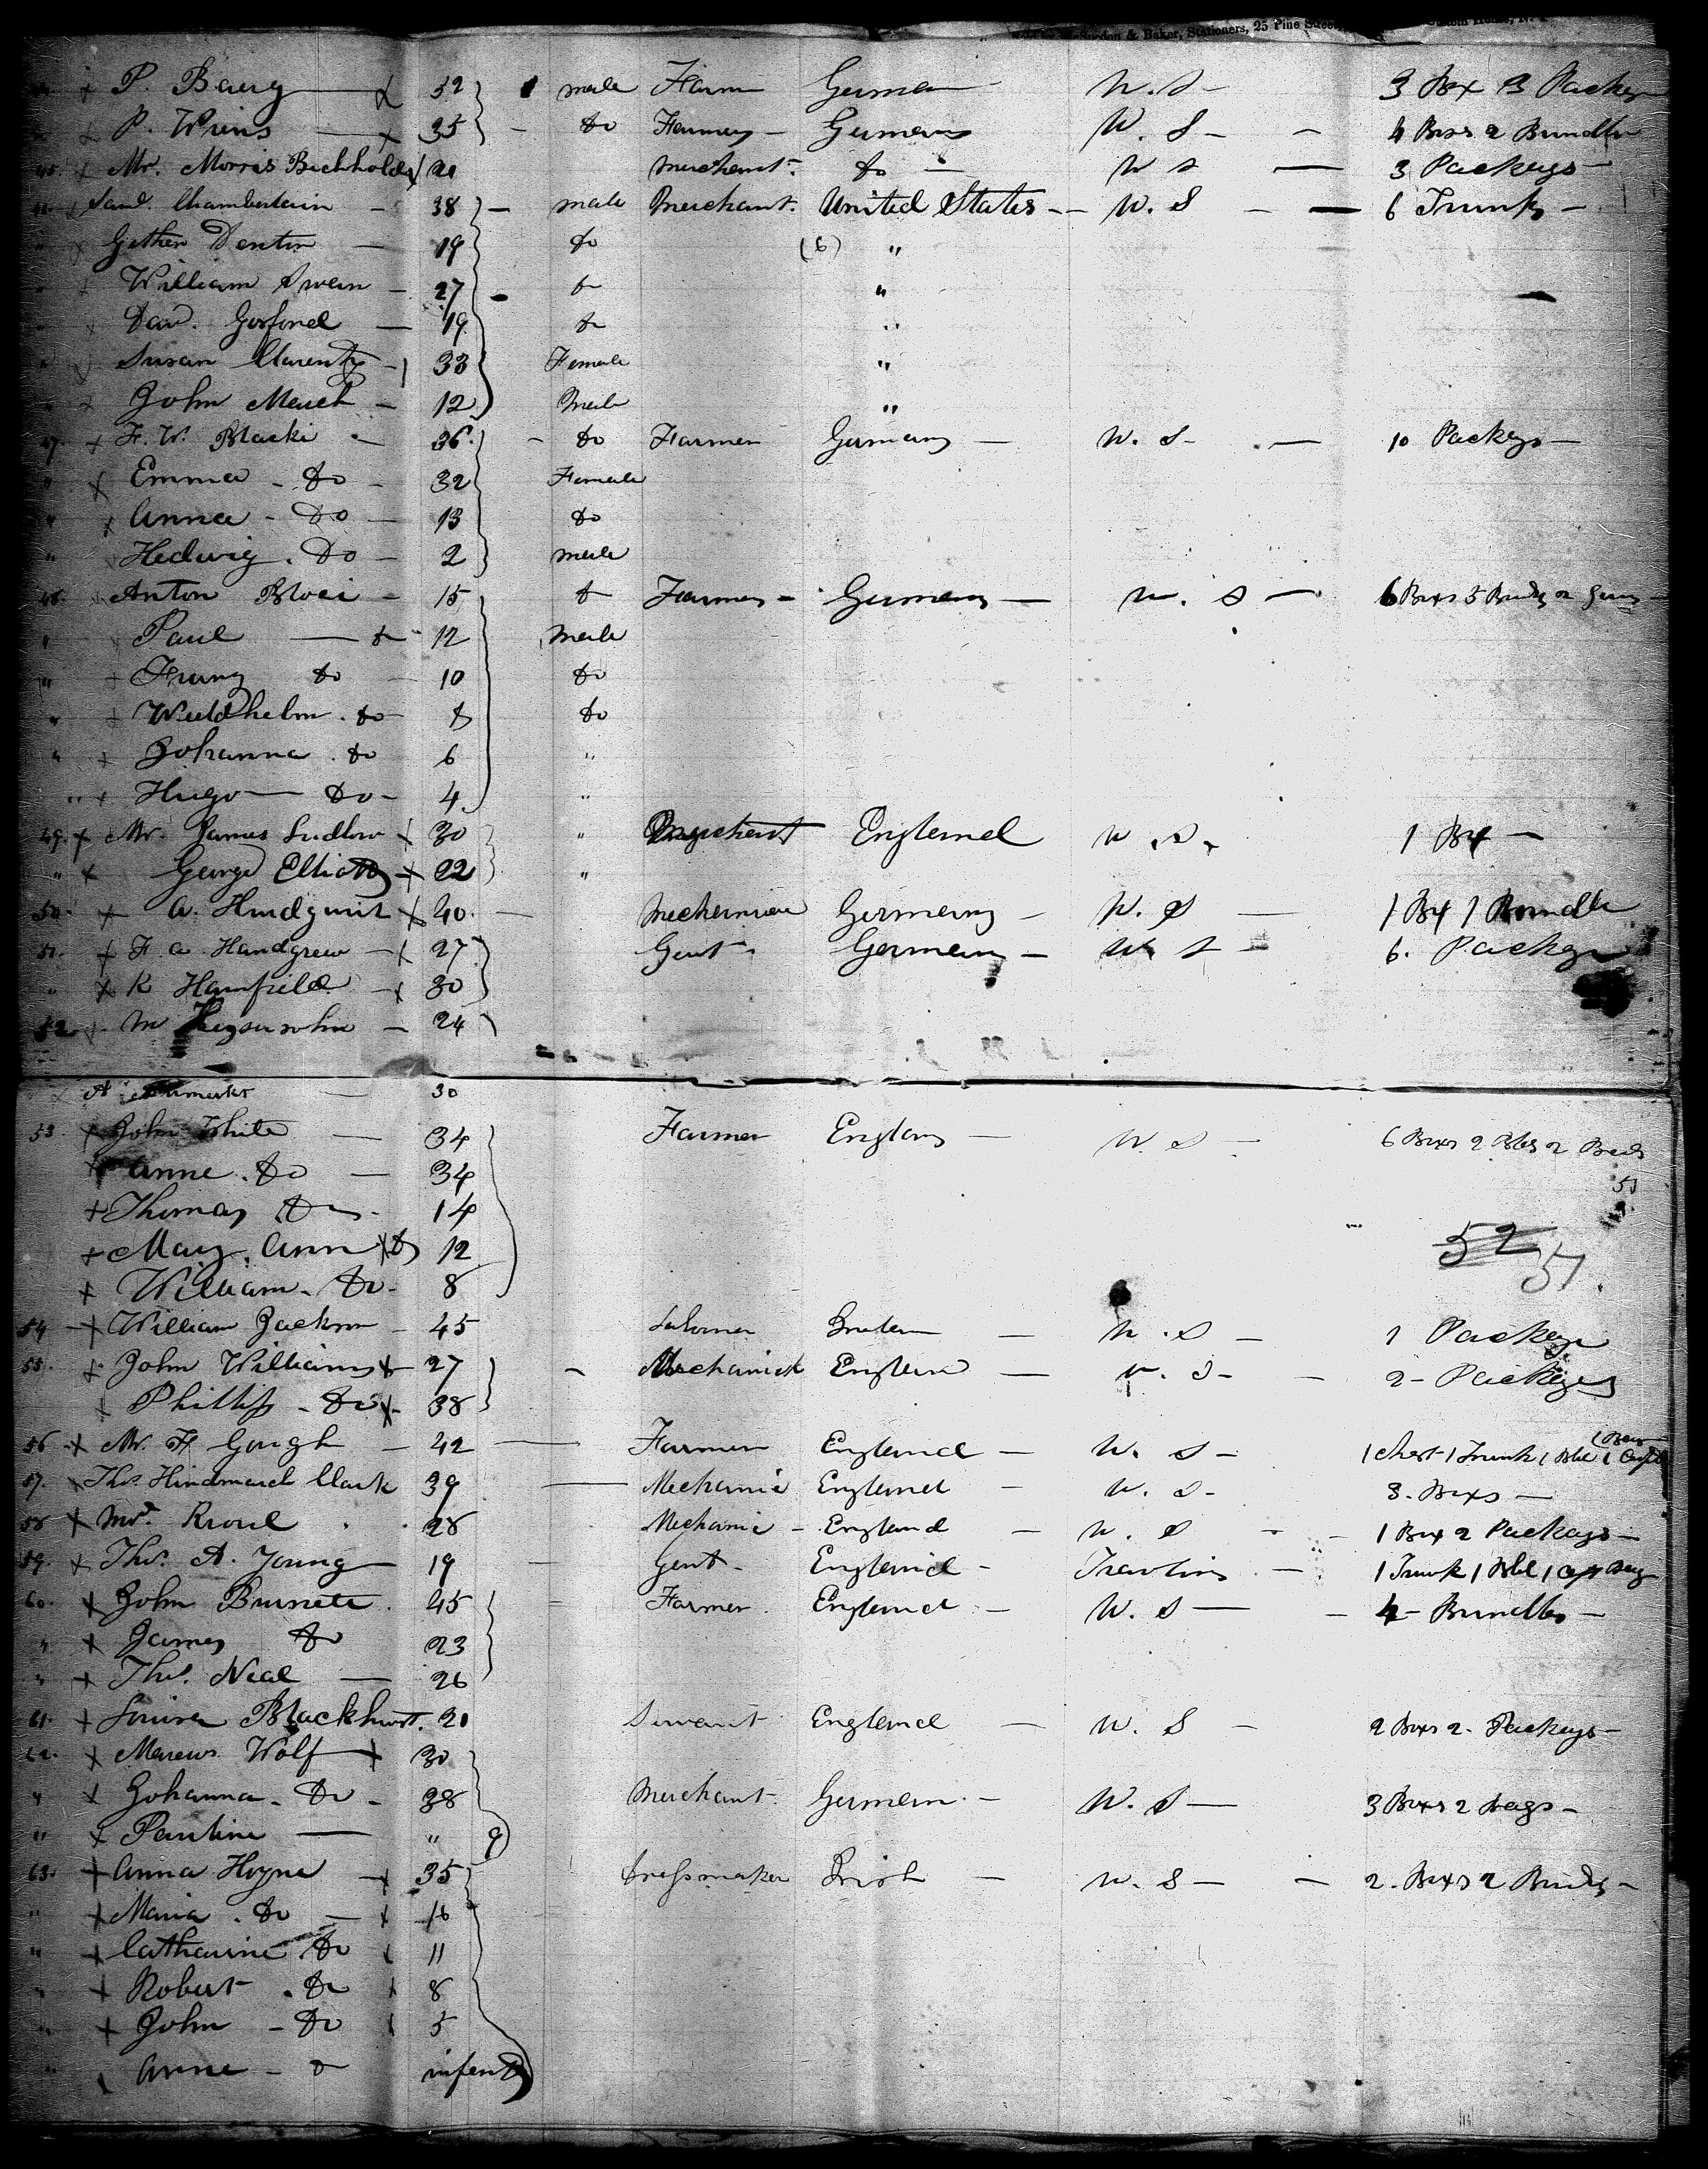 & Baker, Stationers, 25 Pine Street, Custom House, N. Y.
P. Baug 32 male Farm German W. S 3 Box 3 Packeg
P. Wiens 35 do Farmer Germany W. S 4 Boxs 2 Bundles
45. Mr. Morris Buchholdz 20 merchant do W S 3 Packegs
46. Saml. Chamberlain 38 male Merchant United States W. S 6 Trunks
" Denton 19 do (6) "
" William Swain 27 do "
" 19 do "
" Susan 33 Female "
" John March 12 Male "
47. F. W. Blacki 36 do Farmer Germany W. S 10 Packegs
" Emma do 32 Female
" Anna Do 13 do
" Hedwig Do 2 male
48. Anton 15 do Farmer Germany W. S 6 Boxs 5 Bundls 2
" Paul do 12 male
" Franz do 10 do
" Wieldhelm do 8 do
" Johanna do 6 "
" Hugo do 4 "
49. Mr. James Ludlow 30 " Merchant England W. S. 1 Box
" George Elliott 22 "
50. A. 40 Germany W. S 1 Box 1 Bundle
51. F. A. Handgrew 27 Gent Germany W S 6. Packegs
" K Hamfield 30
52. M 24
A 30
53. John White 34 Farmer England W. S 6 Boxs 2 Bbls 2 Beds
Anne Do 34
51
Thomas Do 14
Mary Ann Do 12
52 51
William Do 8
54 William Jackson 45 Laborer W. S 1 Packege
55. John Williams 27 Mechanick England W. S 2 Packeges
Phillip Do 38
56 Mr. H. Gough 42 Farmer England W. S 1 Chest 1 Trunk 1 Bbl
57. Thos. Hindmarch Clark 39 Mechanic England W. S 3. Boxs
58 Mr. 28 Mechanic England W. S 1 Box 2 Packegs
59. Thos. A. Young 19 Gent England Travling 1 Trunk 1 Bbl 1 Cap Bag
60. John Burnett 45 Farmer England W. S 4 Bundles
" James Do 23
" Thos. Neal 26
61. Louisa Blackhurst. 20 Servant England W. S 2 Boxs 2 Packegs
62. Marcus Wolf 30
" Johanna Do 38 Merchant German W. S 3 Boxs 2 bags
" Pauline " 9
63. Anna Hoyne 35 Dressmaker Irish W. S 2. Boxs 2 Bundls
" Maria Do 16
" Catharine Do 11
" Robert Do 8
" John Do 5
" Anne Do infant